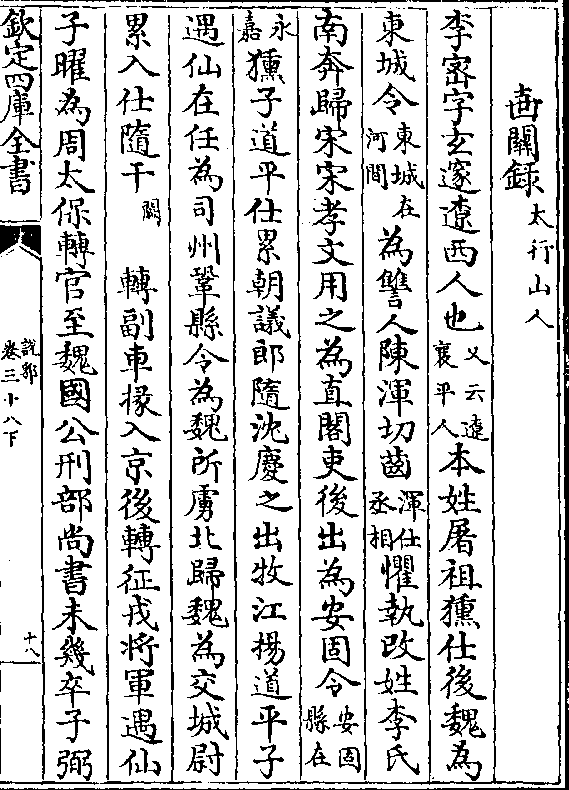 壺關錄太行山人
李宻字玄邃遼西人也又云遼襄平人本姓屠祖獯仕後魏為
東城令東城在河間為讐人陳渾切齒渾仕丞相懼執改姓李氏
南奔歸宋宋孝文用之為直閣吏後出為安固令安固縣在
永嘉獯子道平仕累朝議郎隨沈慶之出牧江揚道平子
遇仙在任為司州鞏縣令為魏所虜北歸魏為交城尉
累入仕隨干闕轉副車掾入京後轉征戎將軍遇仙
子曜為周太保轉官至魏國公刑部尚書未幾卒子弼
欽定四庫全書
說郛
卷三十八下
十八